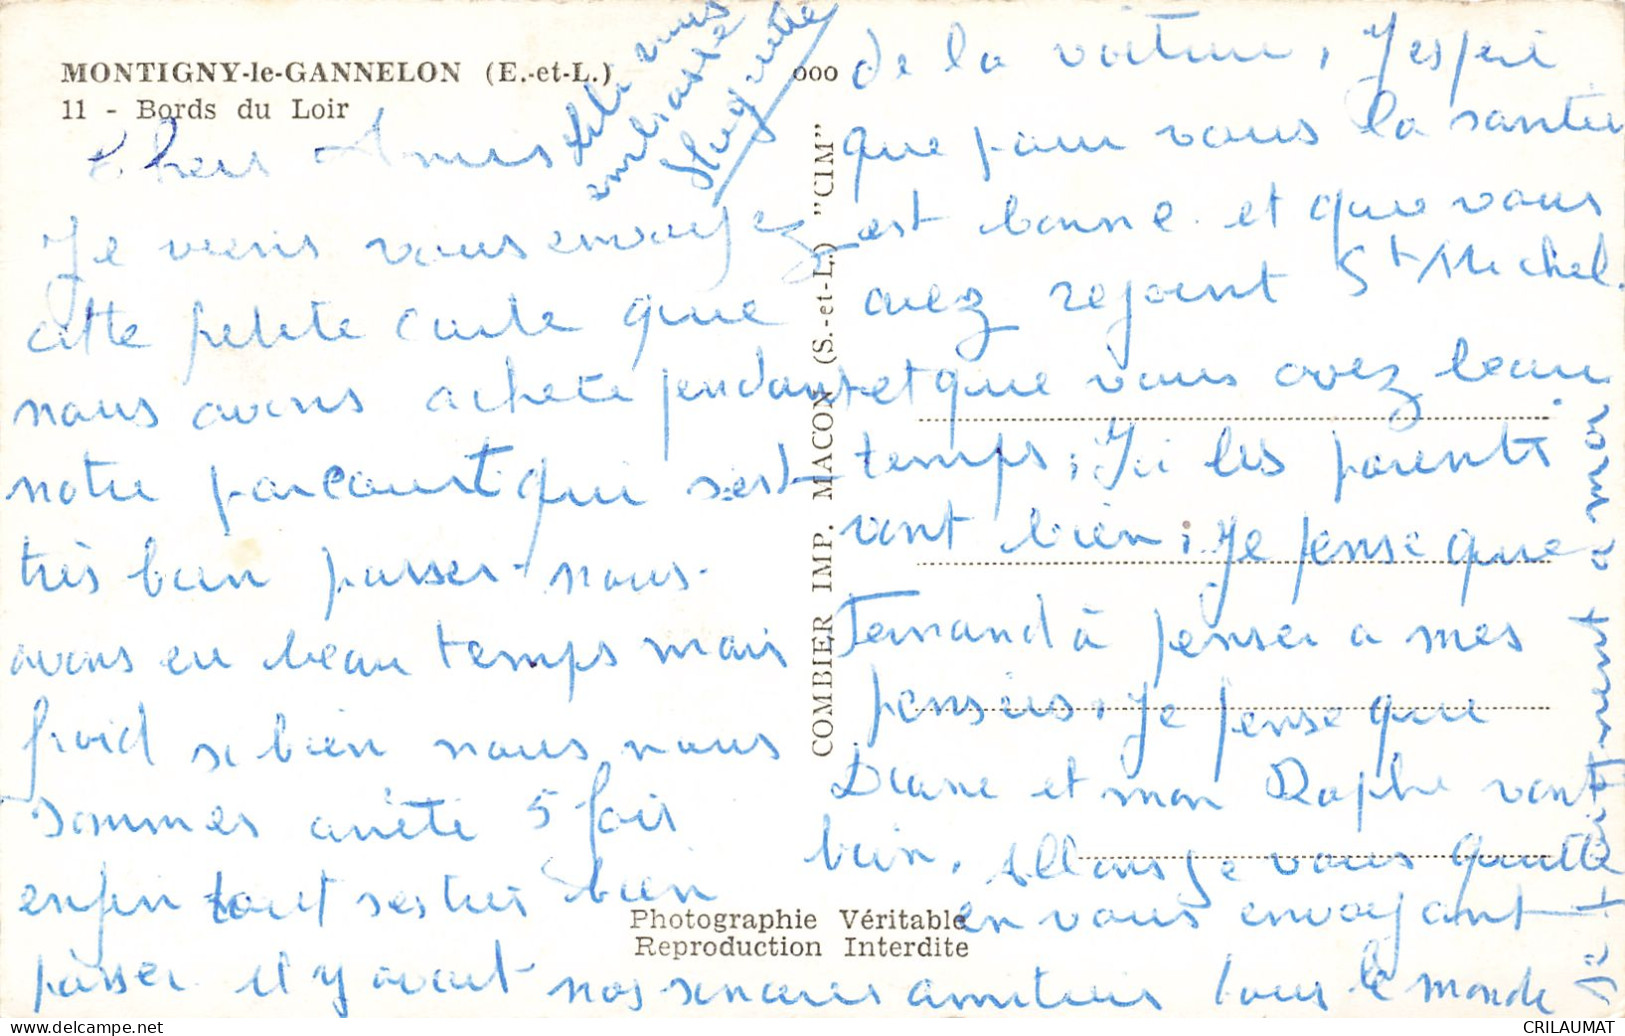 MONTIGNY-le-GANNELON (E.-et-L.)
11 - Bords du Loir
Chers Amis
Je viens vous envoyez
cette petite carte que
nous avons acheté pendant
notre parcourt qui sest
très bien passer nous
avons eu beau temps mais
froid si bien nous nous
sommes arrêté 5 fois
enfin tout ses très bien
passer il y avait
de la voiture, J'espere
que pour vous la santée
est bonne et que vous
avez rejoint St Michel
et que vous avez beau
temps, Ici les parents
vont bien, Je pense que
Fernand à penser a mes
pensées, Je pense que
Diane et mon Raphe vont
bien, Allons je vous quitte
en vous envoyant
nos sincères amitiés tous le monde
se
a mon
vous
embrasse
ooo
COMBIER IMP. MACON (S.-et-L.) "CIM"
Photographie Véritable
Reproduction Interdite
CRILAUMAT